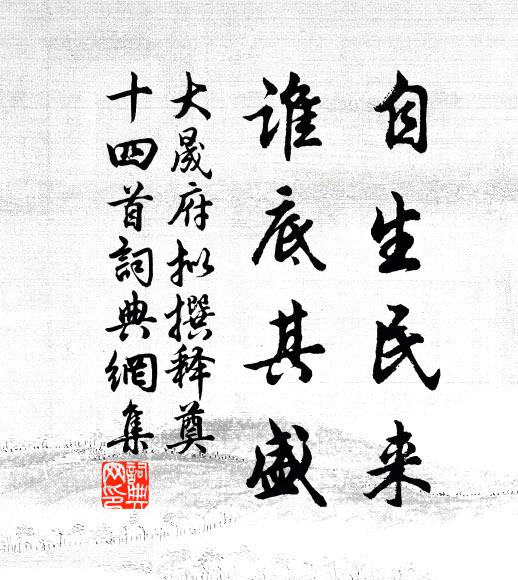 自生民来
谁底其盛
大晟府拟撰释奠
十四首詞典網集
詞典網印